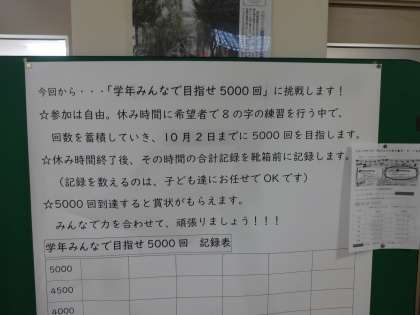 今回から・・・「学年みんなで目指せ5000回」に挑戦します！
☆参加は自由。休み時間に希望者で8の字の練習を行う中で、
回数を蓄積していき、10月2日までに5000回を目指します。
☆休み時間終了後、その時間の合計記録を靴箱前に記録します。
（記録を数えるのは、子ども達にお任せでOKです）
☆5000回到達すると賞状がもらえます。
みんなで力を合わせて、頑張りましょう！！！
学年みんなで目指せ5000回　記録表
5000
4500
4000